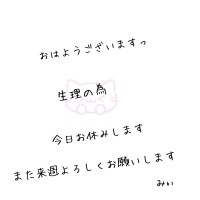 おはようございますっ
生理の為
今日お休みします
また来週よろしくお願いします
みぃ